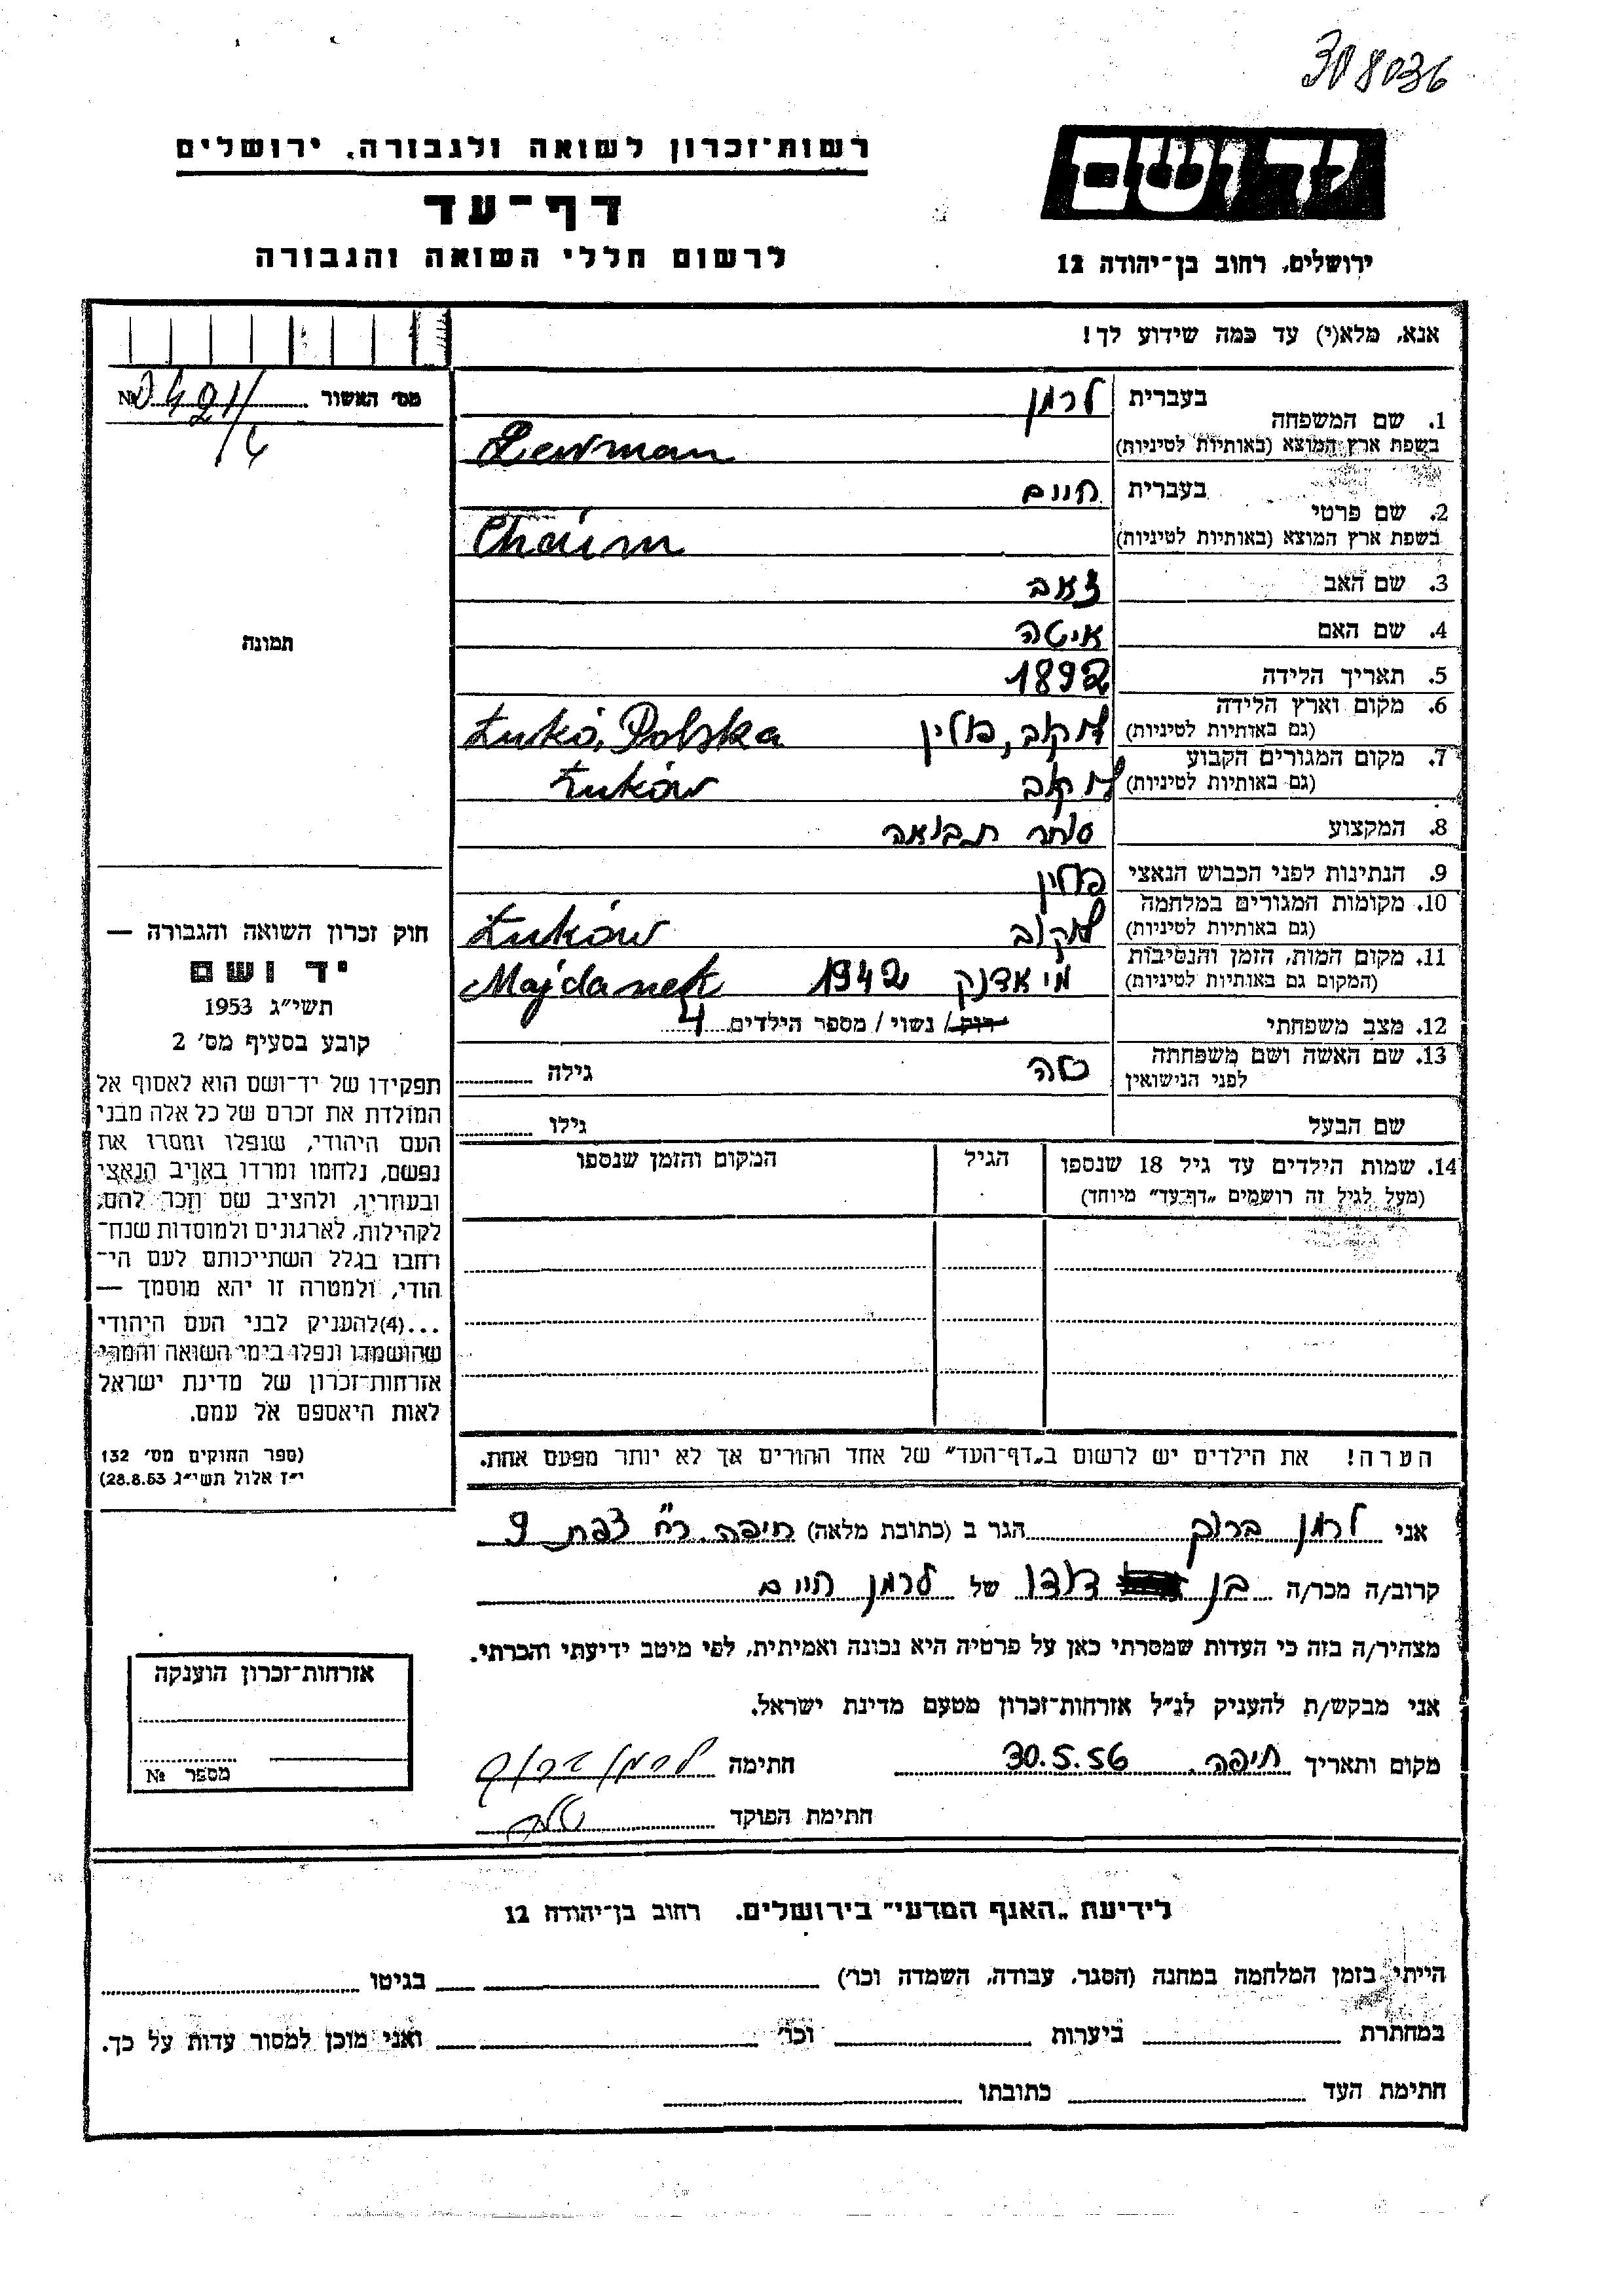 308036
רשות־זכרון לשואה ולגבורה, ירושלים
דף־עד
לרשום חללי השואה והגבורה
יד ושם
ירושלים, רחוב בן־יהודה 12
אנא, מלא(י) עד כמה שידוע לך!
מס׳ האשור № 0421/4
1. שם המשפחה בעברית לרמן
בשפת ארץ המוצא (באותיות לטיניות) Lerman
2. שם פרטי בעברית חיים
בשפת ארץ המוצא (באותיות לטיניות) Chaim
3. שם האב זאב
4. שם האם איטה
5. תאריך הלידה 1892
6. מקום וארץ הלידה
(גם באותיות לטיניות) לוקוב, פולין Łukó, Polska
7. מקום המגורים הקבוע
(גם באותיות לטיניות) לוקוב Łuków
8. המקצוע סוחר תבואה
9. הנתינות לפני הכבוש הנאצי פולין
10. מקומות המגורים במלחמה
(גם באותיות לטיניות) לוקוב Łuków
11. מקום המות, הזמן והנסיבות
(המקום גם באותיות לטיניות) מיאדנק 1942 Majdanek
12. מצב משפחתי רוק / נשוי / מספר הילדים 4
13. שם האשה ושם משפחתה
לפני הנישואין טה גילה
שם הבעל גילו
14. שמות הילדים עד גיל 18 שנספו הגיל המקום והזמן שנספו
(מעל לגיל זה רושמים „דף־עד״ מיוחד)
הערה! את הילדים יש לרשום ב„דף־העד״ של אחד ההורים אך לא יותר מפעם אחת.
תמונה
חוק זכרון השואה והגבורה —
יד ושם
תשי״ג 1953
קובע בסעיף מס׳ 2
תפקידו של יד־ושם הוא לאסוף אל
המולדת את זכרם של כל אלה מבני
העם היהודי, שנפלו ומסרו את
נפשם, נלחמו ומרדו באויב הנאצי
ובעוזריו, ולהציב שם וזכר להם,
לקהילות, לארגונים ולמוסדות שנח־
רחבו בגלל השתייכותם לעם הי־
הודי, ולמטרה זו יהא מוסמך —
...(4)להעניק לבני העם היהודי
שהושמדו ונפלו בימי השואה והמרי
אזרחות־זכרון של מדינת ישראל
לאות היאספם אל עמם.
(ספר החוקים מס׳ 132
י״ז אלול תשי״ג 28.8.53)
אני לרמן ברוך הגר ב (כתובת מלאה) חיפה. רח׳ צפת 9
קרוב/ה מכר/ה בן דודו של לרמן חיים
מצהיר/ה בזה כי העדות שמסרתי כאן על פרטיה היא נכונה ואמיתית, לפי מיטב ידיעתי והכרתי.
אני מבקש/ת להעניק לנ״ל אזרחות־זכרון מטעם מדינת ישראל.
מקום ותאריך חיפה. 30.5.56 חתימה לרמן ברוך
חתימת הפוקד
אזרחות־זכרון הוענקה
מספר №
לידיעת „האגף המדעי״ בירושלים. רחוב בן־יהודה 12
הייתי בזמן המלחמה במחנה (הסגר, עבודה, השמדה וכו׳) בגיטו
במחתרת ביערות וכו׳ ואני מוכן למסור עדות על כך.
חתימת העד כתובתו